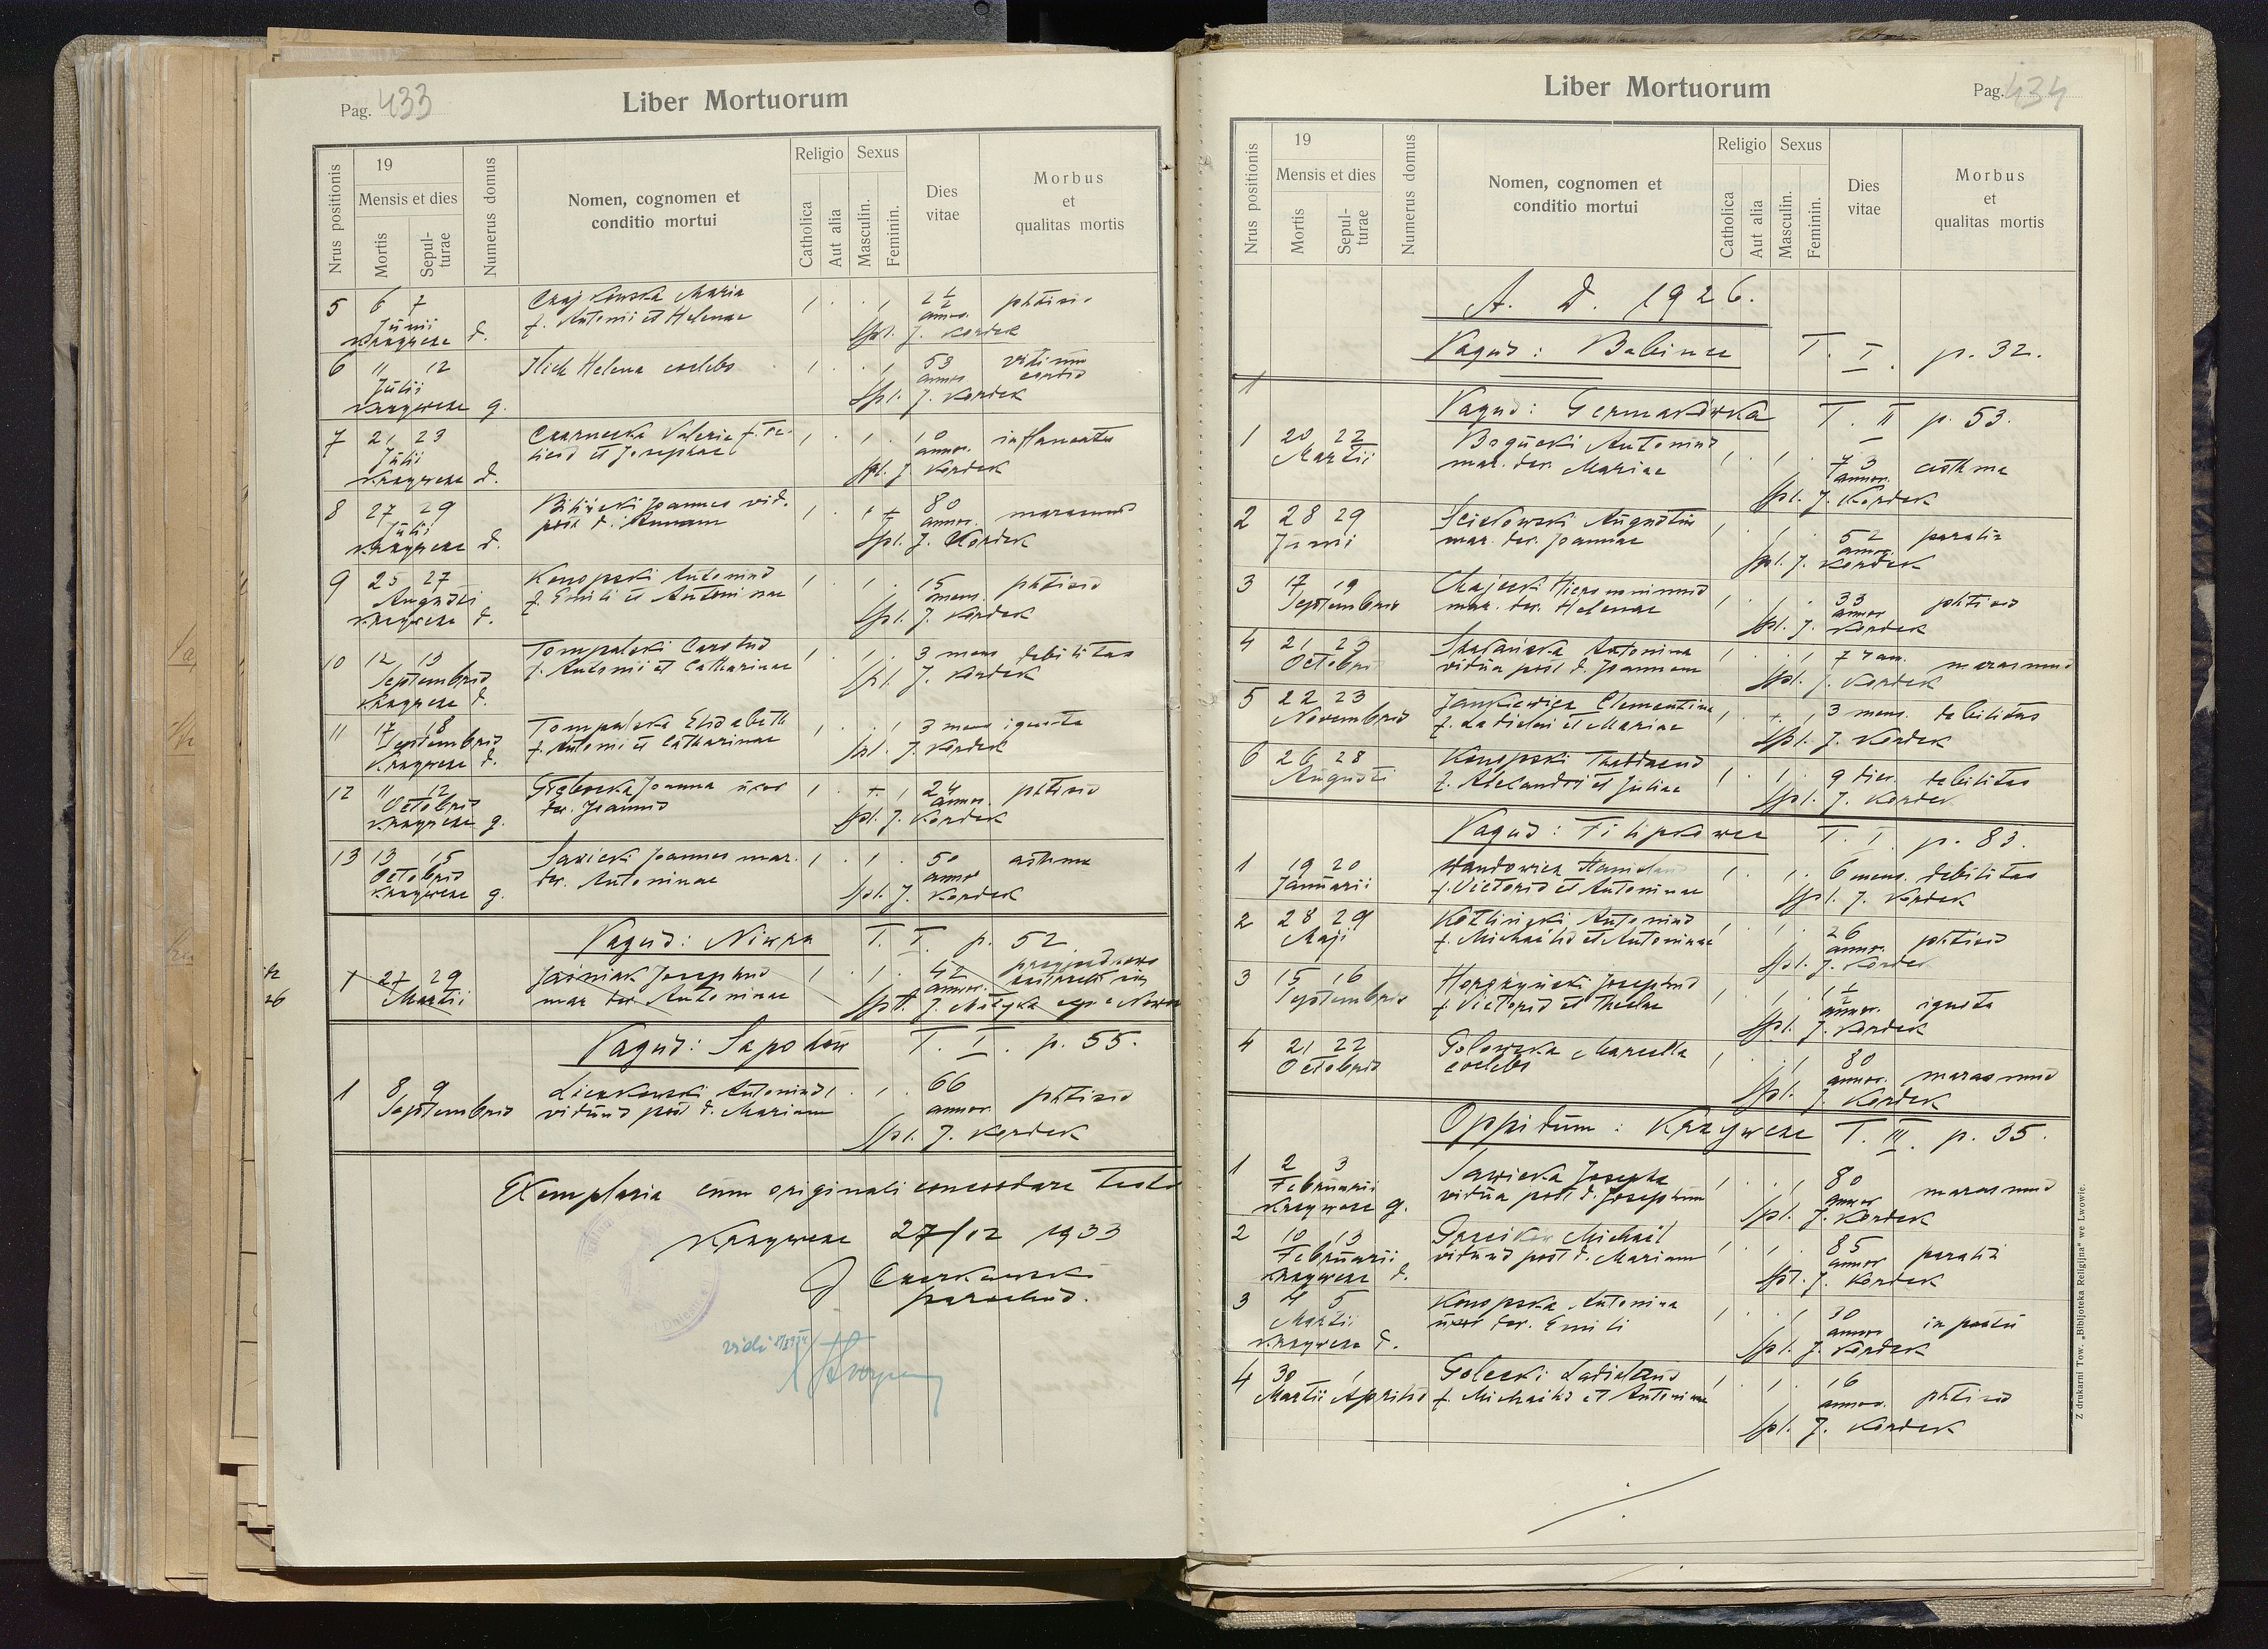 Pag. 433
Liber Mortuorum
Nrus positionis
19
Mensis et dies
Mortis
Sepul-
turae
Numerus domus
Nomen, cognomen et
conditio mortui
Religio
Catholica
Aut alia
Sexus
Masculin.
Feminin.
Dies
vitae
Morbus
et
qualitas mortis
5 6 7 Czajkowska Maria 1 . . 1 phtisis
Junii f. Antonii et Helenae annor.
Krzywcze d. Spl. J. Kordek
6 11 12 Ilich Helena coelebs 1 . . 1 53 vitium
Julii annor. cordis
Krzywcze g. Spl. J. Kordek
7 21 23 Czarnecka Valeria f. Fe- 1 . 1 . 10
Julii licis et Josephae annor.
Krzywcze d. Spl. J. Kordek
8 27 29 Joannes vid. 1 . 1 + 80 marasmus
Julii post d. Annam annor.
Krzywcze d. Spl. J. Kordek
9 25 27 Konopski Antonius 1 . 1 . 15 phtisis
Augusti f. Emili et Antoninae mens.
Krzywcze d. Spl. J. Kordek
10 12 13 Tompalski Carolus 1 . 1 . 3 mens debilitas
Septembris f. Antonii et Catharinae Spl. J. Kordek
Krzywcze d.
11 17 18 Tompalska Elisabeth 1 . . 1 3 mens ignota
Septembris f. Antonii et Catharinae Spl. J. Kordek
Krzywcze d.
12 11 12 Joanna uxor 1 . + 1 24 phtisis
Octobris der. Joannis annor.
Krzywcze g. Spl. J. Kordek
13 13 15 Sawicki Joannes mar. 1 . 1 . 50 asthma
Octobris der. Antoninae annor
Krzywcze g. Spl. J. Kordek
Pagus: Niwra T. I. p. 52
1 27 29 Jaśniak Josephus 1 . 1 . 42
Martii mar. der. Antoninae annor.
Pagus: Sapohów T. I. p. 55.
1 8 9 Antonius 1 . 1 . 66 phtisis
Septembris viduus post d. Mariam annor.
Spl. J. Kordek
Exemplaria cum originali concordare testor
Krzywcze 27/12 1933
J Czerkawski
parochus.
vidi
Pag. 434
Liber Mortuorum
Nrus positionis
19
Mensis et dies
Mortis
Sepul-
turae
Numerus domus
Nomen, cognomen et
conditio mortui
Religio
Catholica
Aut alia
Sexus
Masculin.
Feminin.
Dies
vitae
Morbus
et
qualitas mortis
A. D. 1926.
Pagus: Babince T. I. p. 32.
Pagus: Germakówka T. II p. 53.
1 20 22 Bogucki Antonius 1 . 1 . 73 asthma
Martii mar. der. Mariae annor.
Spl. J. Kordek
2 28 29 Augustin 1 . 1 . 52
Junii mar. der. Joannae annor.
Spl. J. Kordek
3 17 19 Majecki Hieronimus 1 . 1 . 33 phtisis
Septembris mar. der. Helenae annor
Spl. J. Kordek
4 21 23 Antonina 1 . . 1
Octobris vidua post d. Joannem marasmus
Spl. J. Kordek
5 22 23 Jankiewicz Clementina 1 . + 1 3 mens. debilitas
Novembris f. Ladislai et Mariae Spl. J. Kordek
6 26 28 Konopski Thaddaeus 1 . 1 . 9 dies debilitas
Augusti f. Alexandri et Juliae Spl. J. Kordek
Pagus: Filipkowce T. I. p. 83.
1 19 20 Stanislaus 1 . 1 . 6 mens. debilitas
Januarii f. Victoris et Antoninae Spl. J. Kordek
2 28 29 Kotliński Antonius 1 . 1 . 26 phtisis
Maji f. Michaëlis et Antoninae annor.
Spl. J. Kordek
3 15 16 Josephus 1 . 1 . ignota
Septembris f. Victoris et Theclae annor.
Spl. J. Kordek
4 21 22 Golowska Marcella 1 . . 1 80
Octobris coelebs annor. marasmus
Spl. J. Kordek
Oppidum: Krzywcze T. III. p. 35.
1 2 3 Sawicka Josepha 1 . . 1 80 marasmus
Februarii vidua post d. Josephum annor
Krzywcze g. Spl. J. Kordek
2 10 13 Michaël 1 . 1 . 85
Februarii viduus post d. Mariam annor
Krzywcze d. Spl. J. Kordek
3 4 5 Konopska Antonina 1 . . 1 30 in partu
Martii uxor der. Emili annor
Krzywcze d. Spl. J. Kordek
4 30 1 Golecki Ladislaus 1 . 1 . 16 phtisis
Martii Aprilis f. Michaëlis et Antoninae annor.
Spl. J. Kordek
Z drukarni Tow. „Bibljoteka Religijna" we Lwowie.